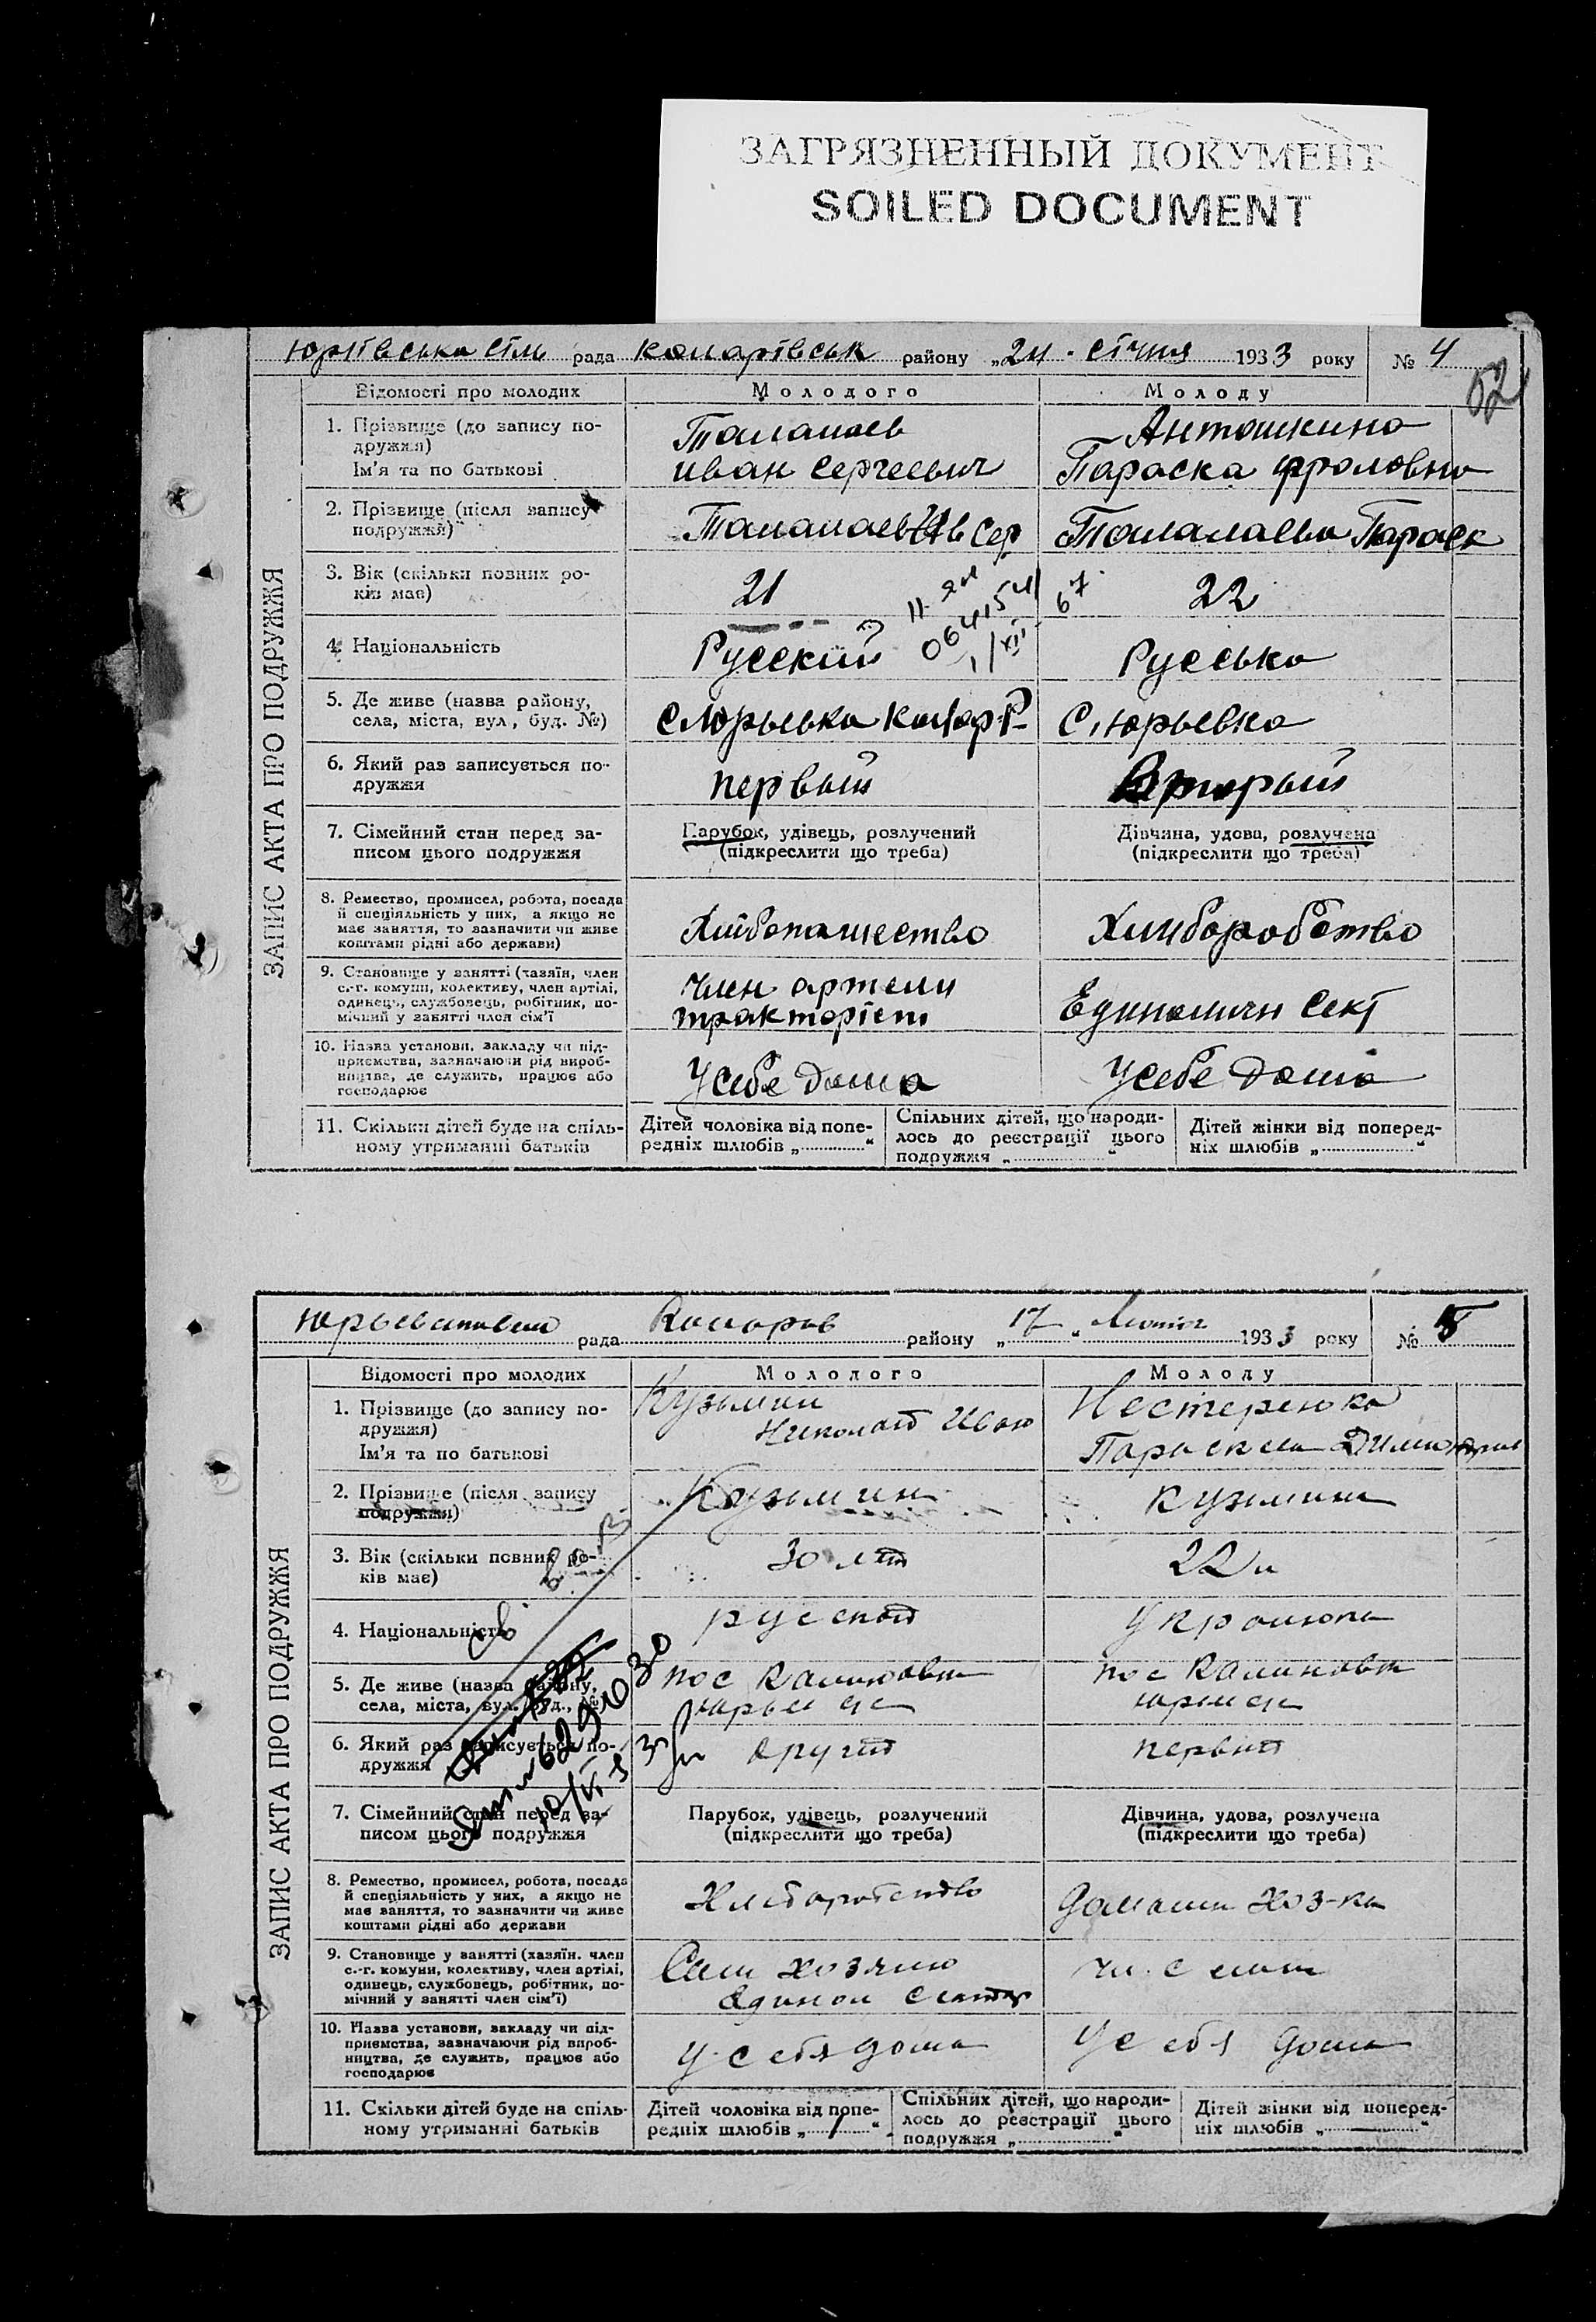 ЗАГРЯЗНЕННЫЙ ДОКУМЕНТ
SOILED DOCUMENT
Юріївська сіль рада Комарівськ району „24 • січня 1933 року № 4
52
ЗАПИС АКТА ПРО ПОДРУЖЖЯ
Відомості про молодих Молодого Молоду
1. Прізвище (до запису по-
дружжя)
Ім'я та по батькові
Таламаев
иван Сергеевич
Антошкина
Параска Фроловна
2. Прізвище (після запису
подружжя)
Таламаев Ив Сер
Таламаева Параск
3. Вік (скільки повних ро-
ків має)
21
22
4. Національність
Русский
Руська
5. Де живе (назва району,
села, міста, вул., буд. №)
С Юрьевка Комар Р
С, Юрьевка
6. Який раз записується по-
дружжя
первый
Вторый
7. Сімейний стан перед за-
писом цього подружжя
Парубок, удівець, розлучений
(підкреслити що треба)
Дівчина, удова, розлучена
(підкреслити що треба)
8. Ремество, промисел, робота, посада
й спеціяльність у них, а якщо не
має заняття, то зазначити чи живе
коштами рідні або держави)
Хліборобство
9. Становище у занятті (хазяїн, член
с.-г. комуни, колективу, член артілі,
одинець, службовець, робітник, по-
мічний у занятті член сім'ї
член артели
тракторіст
Единоличн Сект
10. Назва установи, закладу чи під-
приємства, зазначаючи рід вироб-
ництва, де служить, працює або
господарює
У себе дома
У себе дома
11. Скільки дітей буде на спіль-
ному утриманні батьків
Дітей чоловіка від попе-
редніх шлюбів „ “
Спільних дітей, що народи-
лось до реєстрації цього
подружжя „ “
Дітей жінки від поперед-
ніх шлюбів „ “
рада Комаров району „17 “ Лютого 1933 року № 5
ЗАПИС АКТА ПРО ПОДРУЖЖЯ
Відомості про молодих Молодого Молоду
1. Прізвище (до запису по-
дружжя)
Ім'я та по батькові
Кузьмин
Николай Иван
Нестеренко
Параскева Димитров
2. Прізвище (після запису
подружжя)
Кузьмин
Кузьмин
3. Вік (скільки повних ро-
ків має)
30 лет
22 л
4. Національність
русской
Украинка
5. Де живе (назва району,
села, міста, вул. буд., №)
пос Калиновка
юрьев с/с
пос Калиновка
юрьев с/с
6. Який раз записується по-
дружжя
другий
первий
7. Сімейний стан перед за-
писом цього подружжя
Парубок, удівець, розлучений
(підкреслити що треба)
Дівчина, удова, розлучена
(підкреслити що треба)
8. Ремество, промисел, робота, посада
й спеціяльність у них, а якщо не
має заняття, то зазначити чи живе
коштами рідні або держави
Хлеборобство
Домашн хоз-ка
9. Становище у занятті (хазяїн. член
с.-г. комуни, колективу, член артілі,
одинець, службовець, робітник, по-
мічний у занятті член сім'ї)
Сам хозяин
чл. семи
10. Назва установи, закладу чи під-
приємства, зазначаючи рід вироб-
ництва, де служить, працює або
господарює
У себя дома
У себя дома
11. Скільки дітей буде на спіль-
ному утриманні батьків
Дітей чоловіка від попе-
редніх шлюбів „ 1 “
Спільних дітей, що народи-
лось до реєстрації цього
подружжя „ “
Дітей жінки від поперед-
ніх шлюбів „ — “